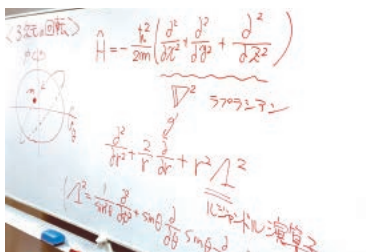 <3次元の回転>
Ĥ = -ħ²/2m (∂²/∂x² + ∂²/∂y² + ∂²/∂z²)
∇² ラプラシアン
∂²/∂r² + 2/r ∂/∂r + r² Λ²
ルジャンドル演算子
(Λ² = 1/sinθ ∂²/∂φ² + sinθ ∂/∂θ sinθ ∂